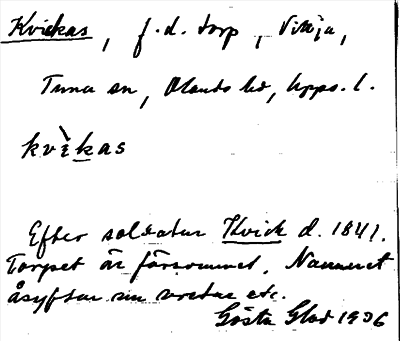 Kvickas, f.d. torp, Viksja,
Tuna sn, Olands hd, Upps. l.
kvìkas
Efter soldaten Kvick d. 1841.
Torpet är försvunnet. Namnet
åsyftar nu vretar etc.
Gösta Glad 1936